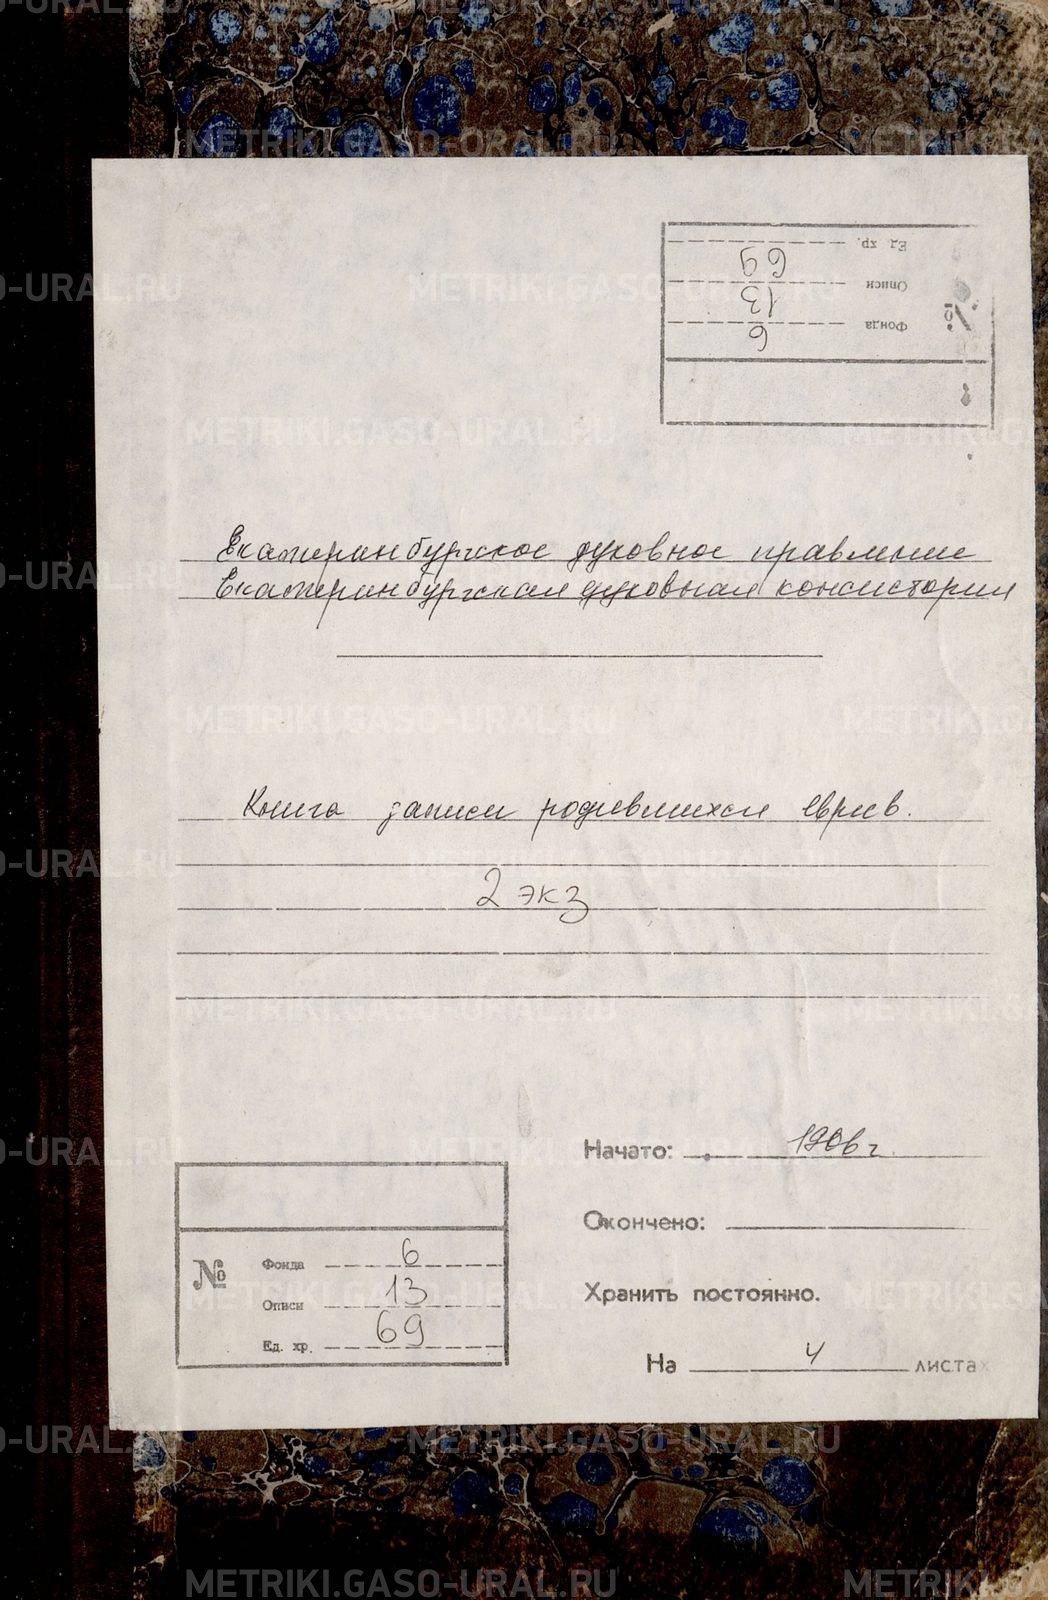 Ед. хр. 69
Описи 13
№ Фонда 6
Екатеринбургское духовное правление
Екатеринбургская духовная консистория
Книга записи родившихся евреев.
2 экз
Начато: 1906 г.
Окончено:
Хранить постоянно.
На 4 листах
№ Фонда 6
Описи 13
Ед. хр. 69
METRIKI.GASO-URAL.RU